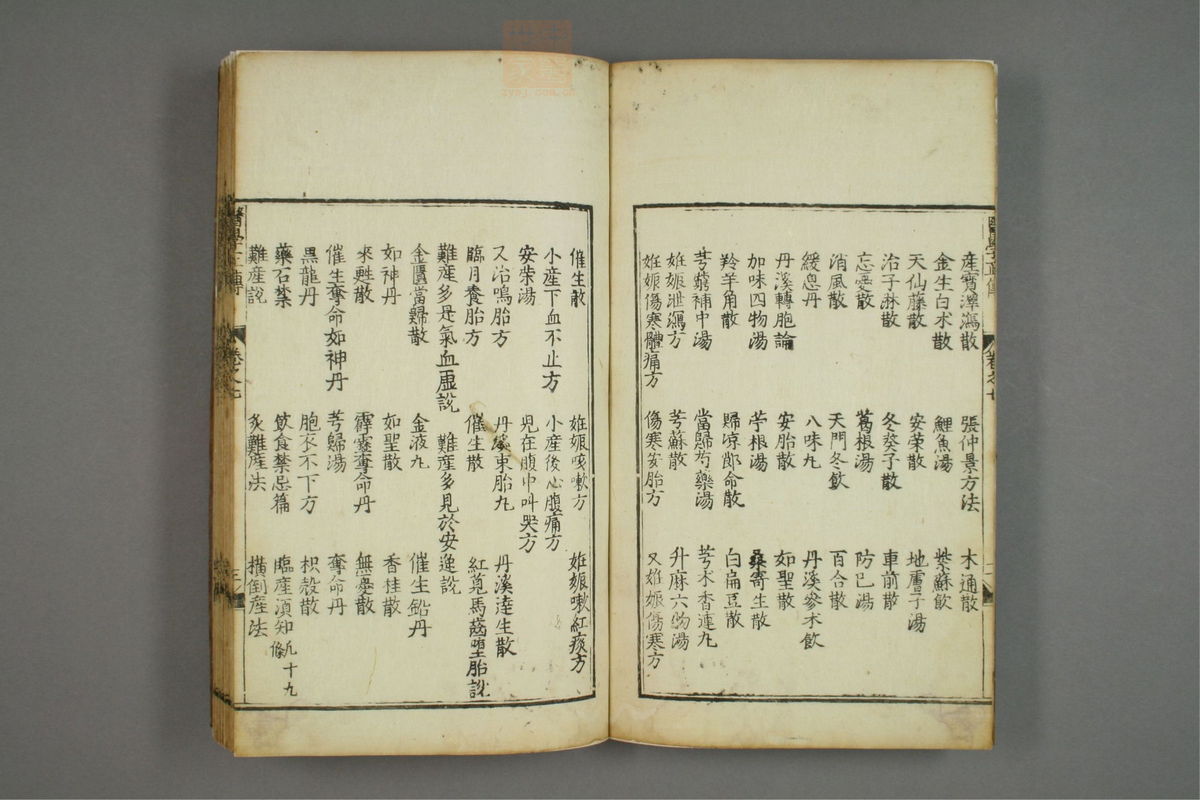 産寶澤瀉散　張仲景方法　木通散
金生白术散　鯉魚湯　紫蘇飲
天仙藤散　安榮散　地膚子湯
治子淋散　冬葵子散　車前散
忘憂散　葛根湯　防已湯
消風散　天門冬飲　百合散
緩息丹　八味丸　丹溪參术飲
丹溪轉胞論　安胎散　如聖散
加味四物湯　苧根湯　桑寄生散
羚羊角散　歸凉郎命散　白扁豆散
芎藭補中湯　當歸芍藥湯　芎术香連丸
姙娠泄瀉方　芎蘇散　升麻六物湯
姙娠傷寒體痛方　傷寒安胎方　又姙娠傷寒方
催生散　姙娠咳嗽方　姙娠嗽紅痰方
小産下血不止方　小産後心腹痛方
安榮湯　兒在腹中叫哭方
又治鳴胎方　丹溪束胎丸　丹溪達生散
臨月養胎方　催生散　紅莧馬齒墮胎説
難産多是氣血虛説　難産多見於安逸説
金匱當歸散　金液丸　催生鉛丹
如神丹　如聖散　香桂散
來甦散　霹靂奪命丹　無憂散
催生奪命如神丹　芎歸湯　奪命丹
黒龍丹　胞衣不下方　枳殻散
藥石禁　飲食禁忌篇　臨産須知凡十九條
難産説　炙難産法　横倒産法
醫學正傳　卷之七　三